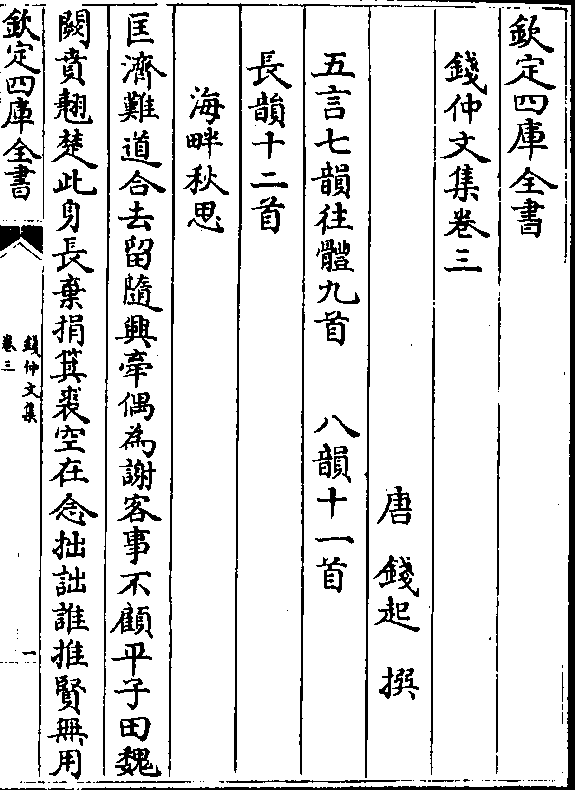 欽定四庫全書
錢仲文集卷三
唐 錢起 撰
五言七韻往體九首 八韻十一首
長韻十二首
海畔秋思
匡濟難道合去留隨興牽偶為謝客事不顧平子田魏
闕賁翹楚此身長棄捐箕裘空在念拙詘誰推賢無用
欽定四庫全書
錢仲文集
卷三
一